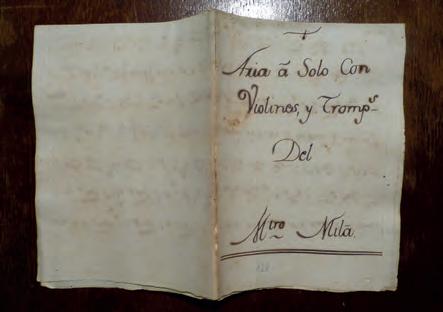 Aria â Solo Con
Violines, y Tromp.s
Del
Mtro Milâ.